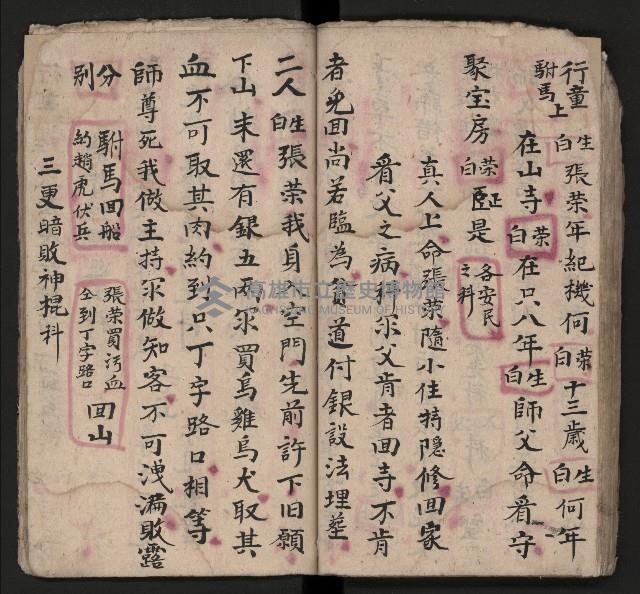 行童
駙馬上 白生 張荣年紀機何 白荣 十三歲 白生 何年
在山寺 白荣 在只八年 白生 師父命看守
聚宝房 白荣 正是 各安民之科
真人上命張荣隨小住特隐修回家
看父之病 尔父肯者回寺不肯
者免回尚若臨為貧道付銀設法埋塟
二人 白生 張荣我身入空門先前許下旧願
下山未還有銀五両尔買烏雞烏犬取其
血不可取其肉約到只丁字路口相等
師尊死我做主持尔做知客不可洩漏敗露
分别 駙馬回船 約趙虎伏兵 張荣買污血 仝到丁字路口 回山
三更暗敗神棍科
高雄市立歷史博物館
KAOHSIUNG MUSEUM OF HISTORY